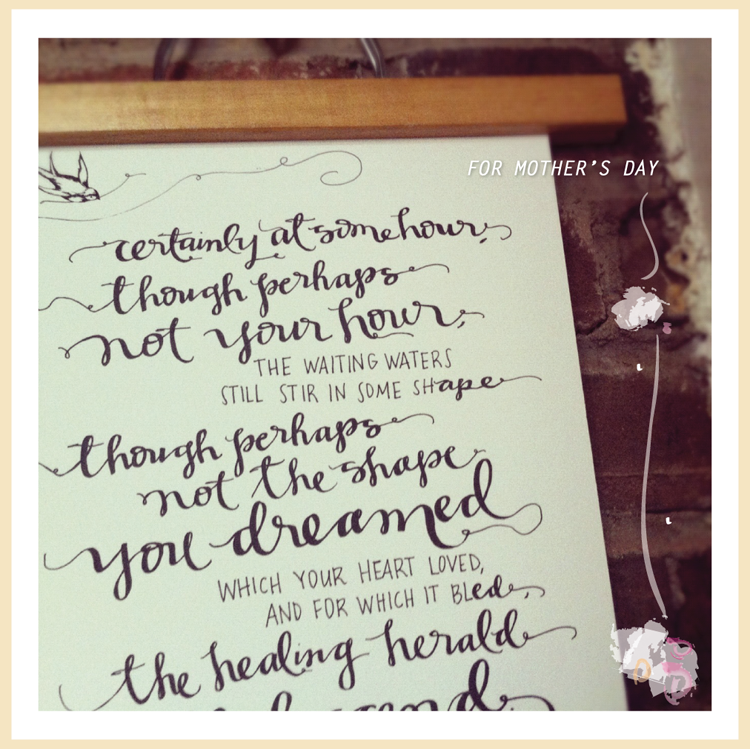 FOR MOTHER'S DAY
certainly at some hour,
though perhaps
not your hour,
THE WAITING WATERS
STILL STIR IN SOME SHape
though perhaps
not the shape
you dreamed
WHICH YOUR HEART LOVED,
AND FOR WHICH IT BLed,
the healing herald